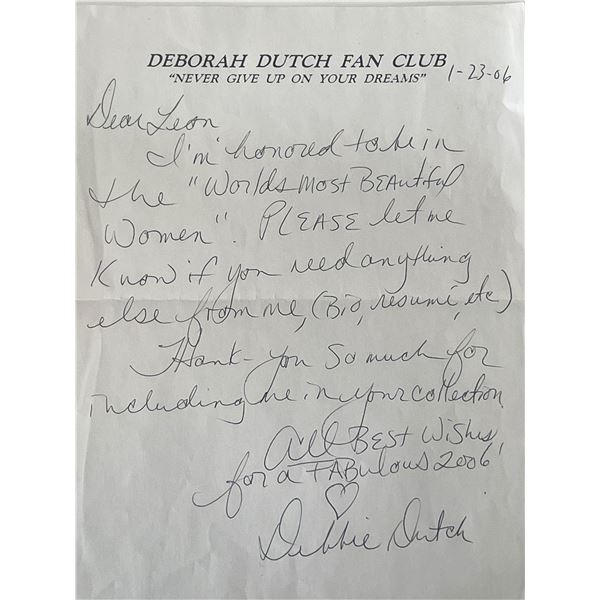 DEBORAH DUTCH FAN CLUB
"NEVER GIVE UP ON YOUR DREAMS"
1-23-06
Dear Leon
I'm honored to be in
the "Worlds most BEAutiful
Women". PLEASE let me
Know if you need anything
else from me, (Bio, resumé, etc)
Thank-you so much for
including me in your collection
All BEST WisHes
for a FABulous 2006
Debbie Dutch